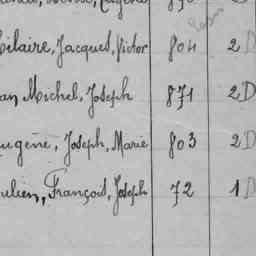 Eugène
Hilaire, Jacques, Victor 804 2 D
an Michel, Joseph 871 2 D
Eugène, Joseph, Marie 803 2 D
ulien, François, Joseph 72 1 D